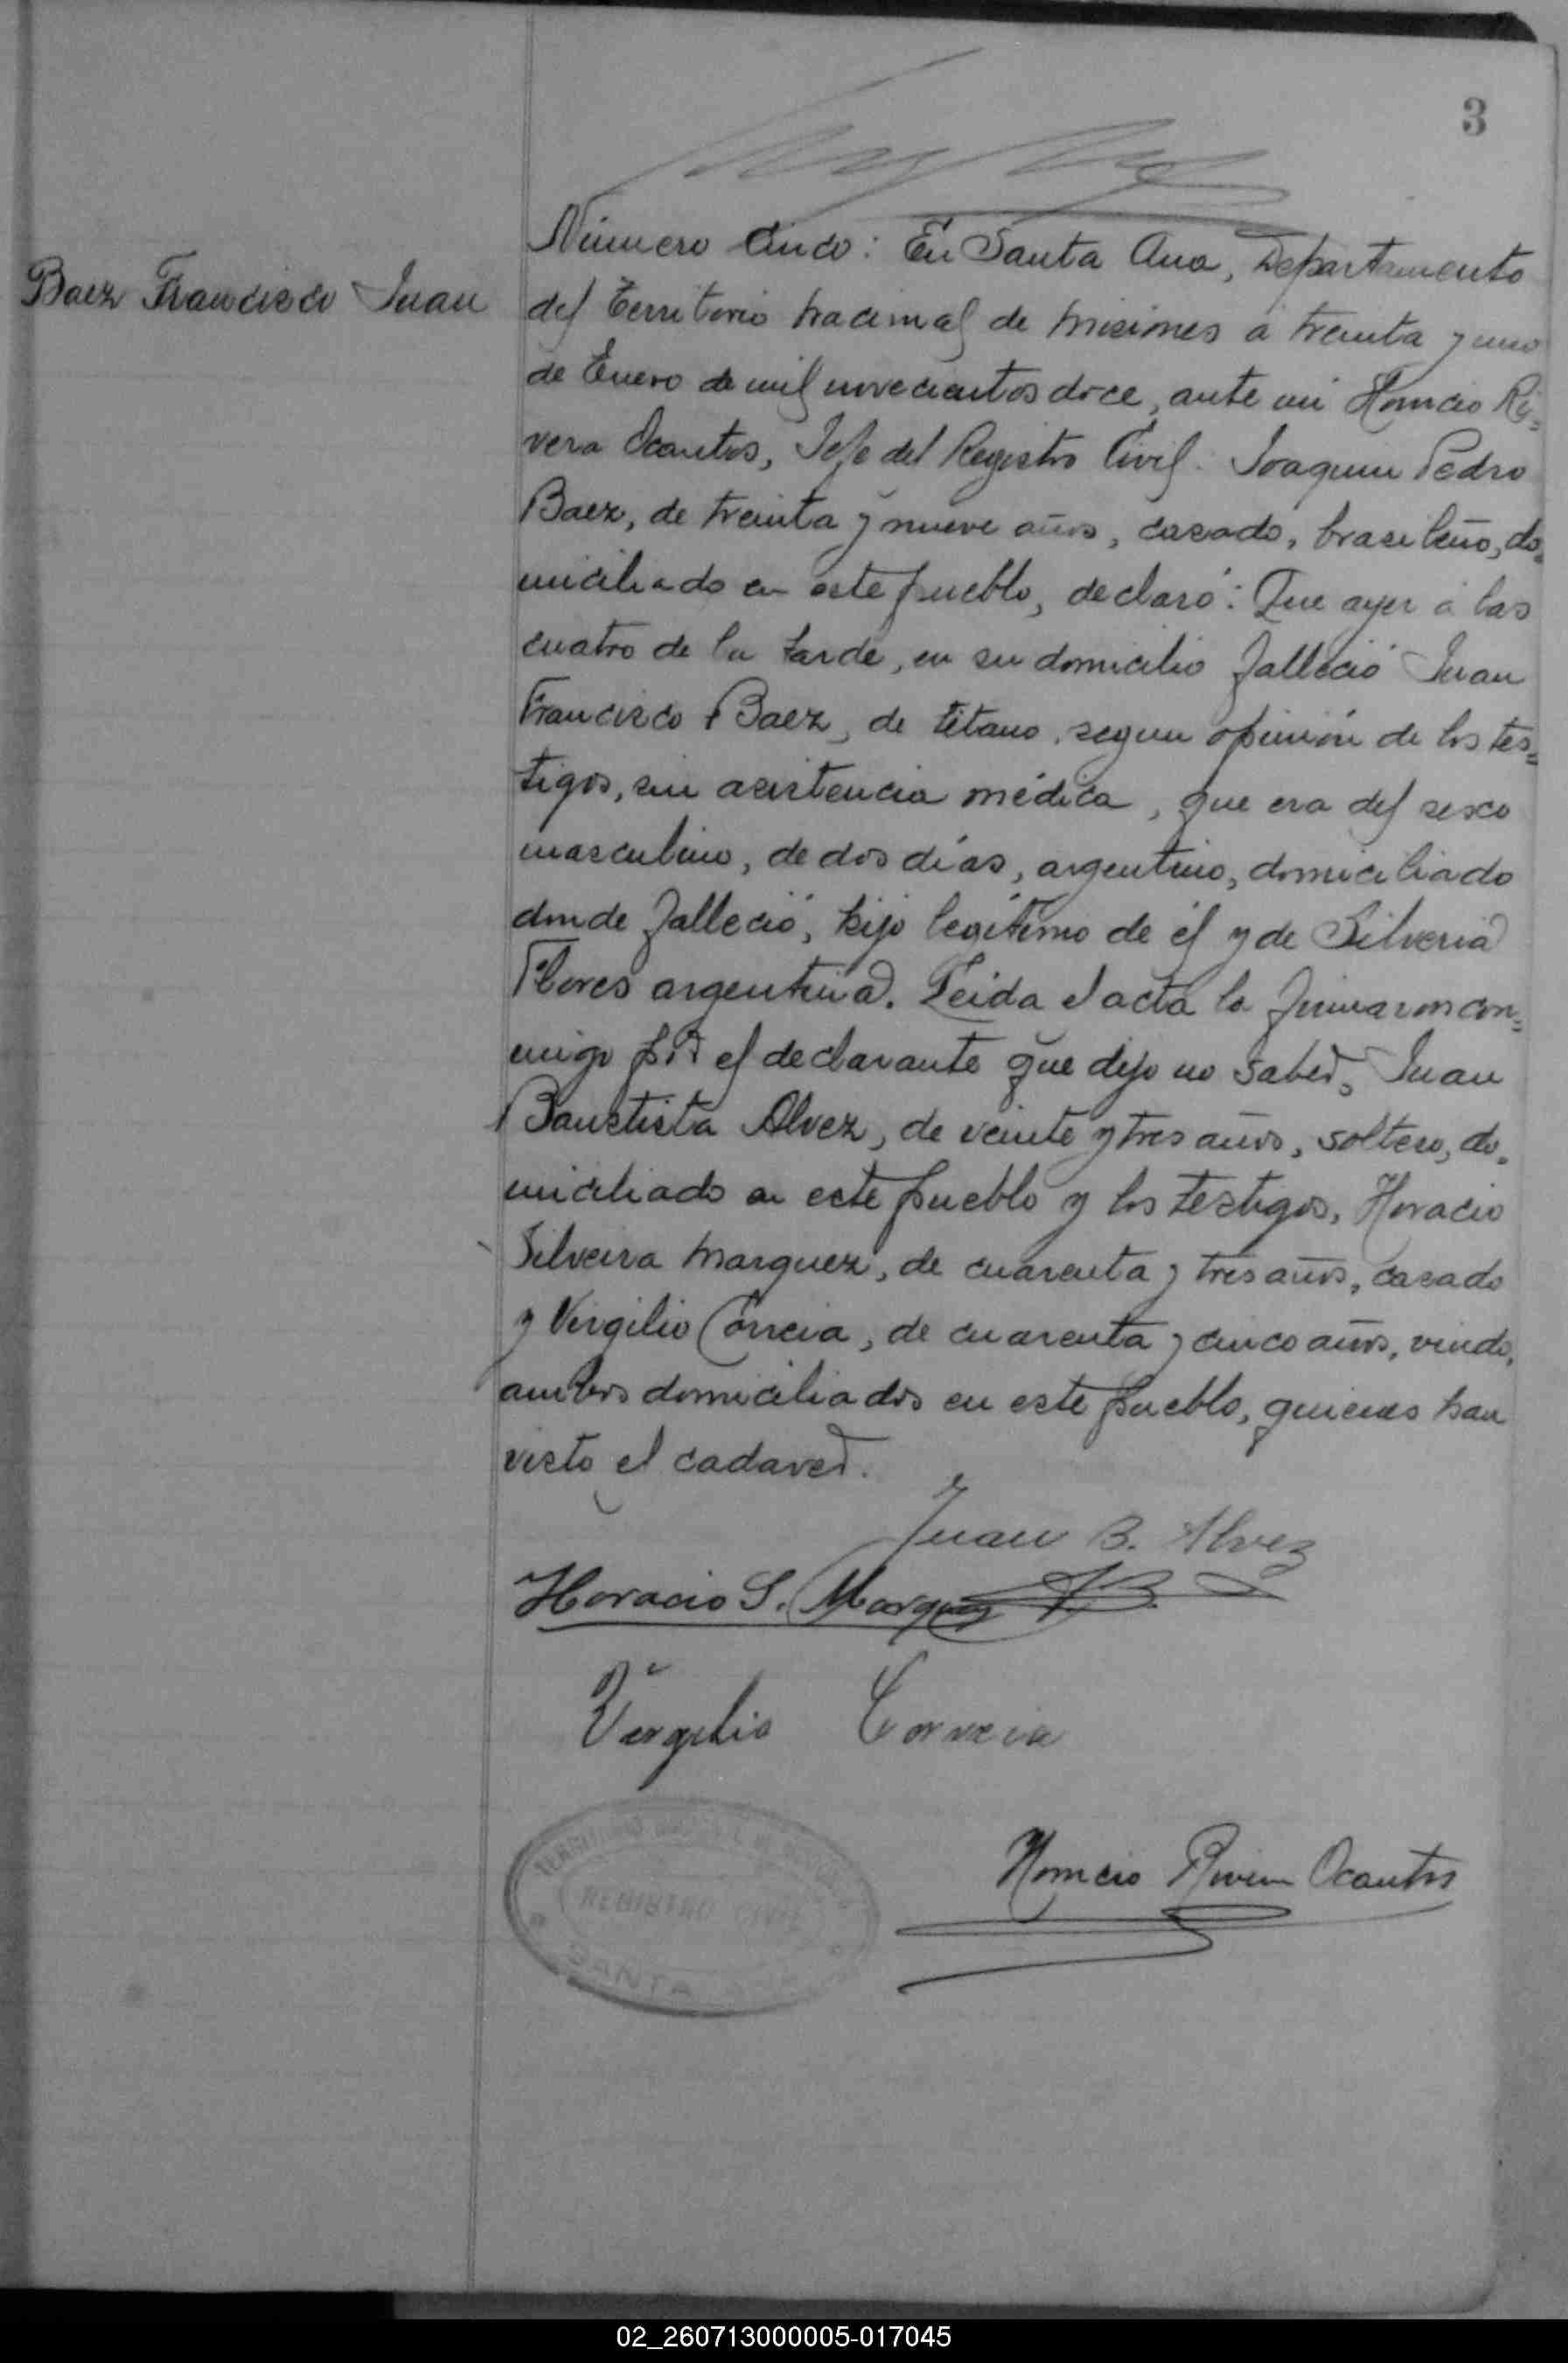 3
Baez Francisco Juan
Número Cinco: En Santa Ana, Departamento
del Territorio Nacional de Misiones á treinta y uno
de Enero de mil novecientos doce, ante mi Horacio Ri=
vera Ocantos, Jefe del Registro Civil. Joaquin Pedro
Baez, de treinta y nueve años, casado, brasileño, do=
miciliado en este pueblo, declaró: Que ayer á las
cuatro de la tarde, en su domicilio falleció Juan
Francisco Baez, de tétano, segun opinión de los tes=
tigos, sin asistencia médica, que era del sexo
masculino, de dos días, argentino, domiciliado
donde falleció, hijo legítimo de él y de Silveria
Flores argentina. Leida el acta la firmaron con=
migo por el declarante que dijo no saber, Juan
Bauctista Alvez, de veinte y tres años, soltero, do=
miciliado en este pueblo y los testigos, Horacio
Silveira Marquez, de cuarenta y tres años, casado
y Virgilio Correia, de cuarenta y cinco años, viudo,
ambos domiciliados en este pueblo, quienes han
visto el cadaver.
Juan B. Alvez
Horacio S. Marquez
Vergilio Correia
Horacio Rivera Ocantos
REGISTRO CIVIL
SANTA
02_260713000005-017045